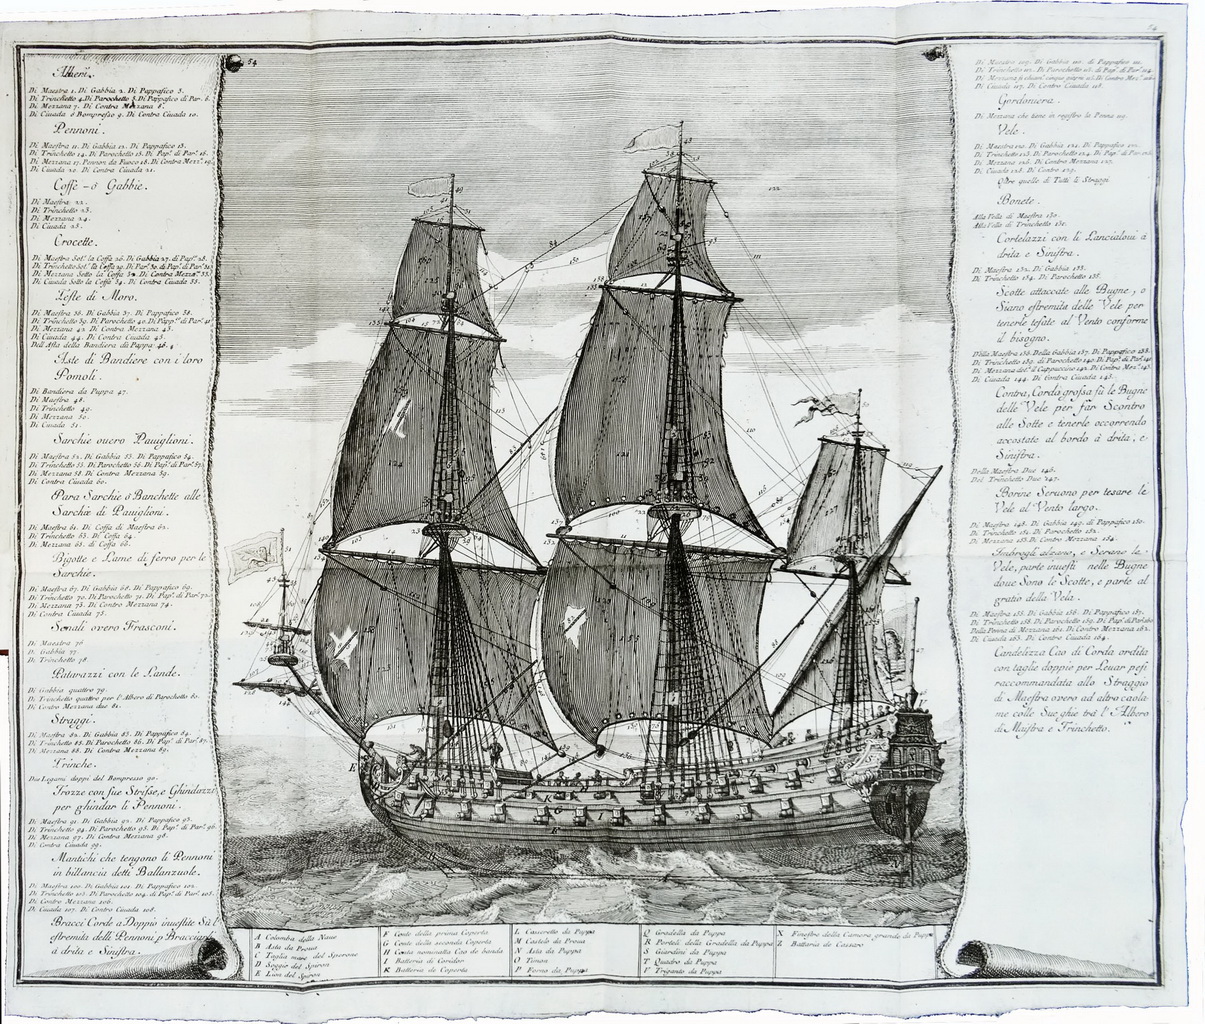 Alberi.
Di Maestra 1. Di Gabbia 2. Di Pappafico 3.
Di Trinchetto 4. Di Parochetto 5. Di Pappafico di Par. 6.
Di Mezzana 7. Di Contra Mezzana 8.
Di Ciuada ò Bompresso 9. Di Contra Ciuada 10.
Pennoni.
Di Maestra 11. Di Gabbia 12. Di Pappafico 13.
Di Trinchetto 14. Di Parochetto 15. Di Pap. di Par. 16.
Di Mezzana 17. Pennon da Fuoco 18. Di Contra Mezz. 19.
Di Ciuada 20. Di Contra Ciuada 21.
Coffe - ó Gabbie.
Di Maestra 22.
Di Trinchetto 23.
Di Mezzana 24.
Di Ciuada 25.
Crocette.
Di Maestra Sot. la Coffa 26. Di Gabbia 27. di Pap. 28.
Di Trinchetto Sot. la Coffa 29. Di Par. 30. di Pap. di Par. 31.
Di Mezzana Sotto la Coffa 32. Di Contra Mezza. 33.
Di Ciuada Sotto la Coffa 34. Di Contra Ciuada 35.
Teste di Moro.
Di Maestra 36. Di Gabbia 37. Di Pappafico 38.
Di Trinchetto 39. Di Parochetto 40. Di Papp. di Par. 41.
Di Mezzana 42. Di Contra Mezzana 43.
Di Ciuada 44. Di Contra Ciuada 45.
Dell'Asta della Bandiera di Pappa 46.
Aste di Bandiere con i loro
Pomoli.
Di Bandiera da Puppa 47.
Di Maestra 48.
Di Trinchetto 49.
Di Mezzana 50.
Di Ciuada 51.
Sarchie ouero Pauiglioni.
Di Maestra 52. Di Gabbia 53. Di Pappafico 54.
Di Trinchetto 55. Di Parochetto 56. Di Pap. di Par. 57.
Di Mezzana 58. Di Contra Mezzana 59.
Di Contra Ciuada 60.
Para Sarchie ó Banchette alle
Sarchie di Pauiglioni.
Di Maestra 61. Di Coffa di Maestra 62.
Di Trinchetto 63. Di Coffa 64.
Di Mezzana 65. di Coffa 66.
Bigotte e Lame di ferro per le
Sarchie.
Di Maestra 67. Di Gabbia 68. Di Pappafico 69.
Di Trinchetto 70. Di Parochetto 71. Di Pap. di Par. 72.
Di Mezzana 73. Di Contro Mezzana 74.
Di Contra Ciuada 75.
Senali overo Frasconi.
Di Maestra 76
Di Gabbia 77
Di Trinchetto 78
Patarazzi con le Lande.
Di Gabbia quattro 79.
Di Trinchetto quattro per l'Albero di Parochetto 80.
Di Contro Mezzana due 81.
Straggi.
Di Maestra 82. Di Gabbia 83. Di Pappafico 84.
Di Trinchetto 85. Di Parochetto 86. Di Pap. di Par. 87.
Di Mezzana 88. Di Contro Mezzana 89.
Trinche.
Due Legami doppi del Bompresso 90.
Trozze con sue Strisse, e Ghindazzi
per ghindar li Pennoni.
Di Maestra 91. Di Gabbia 92. Di Pappafico 93.
Di Trinchetto 94. Di Parochetto 95. Di Pap. di Par. 96.
Di Mezzana 97. Di Contro Mezzana 98.
Di Contra Ciuada 99.
Mantichi che tengono li Pennoni
in billancia detti Ballanzuole.
Di Maestra 100. Di Gabbia 101. Di Pappafico 102.
Di Trinchetto 103. Di Parochetto 104. di Pap. di Par. 105.
Di Contro Mezzana 106.
Di Ciuada 107. Di Contro Ciuada 108.
Bracci Corde a Doppio inuestite Sù l'
estremità delli Pennoni p. Bracciarli
á drita e Sinistra.
A Colomba della Naue
B Asta da Proua
C Taglia mare del Sperone
D Soggio del Spiron
E Lion del Spiron
F Cinte della prima Coperta
G Cinte della seconda Coperta
H Cinta nominatta Cao de banda
I Battaria di Coridor
K Battaria de Coperta
L Casseretto da Puppa
M Castelo da Proua
N Asta da Puppa
O Timon
P Forno da Puppa
Q Gradella da Puppa
R Porteli della Gradella da Puppa
S Giardini da Puppa
T Quadro da Puppa
V Triganto da Puppa
X Finestre della Camera grande da Puppa
Z Battaria de Cassaro
Gordoniera.
Di Mezzana che tiene in registro la Penna 119.
Vele.
Di Mezzana 126. Di Contro Mezzana 127.
Di Ciuada 128. Di Contro Ciuada 129.
Oltre quelle di Tutti li Straggi
Bonete.
Alla Vella di Maestra 130.
Alla Vella di Trinchetto 131.
Cortelazzi con li Lancialoui á
drita e Sinistra.
Di Maestra 132. Di Gabbia 133.
Di Trinchetto 134. Di Parochetto 135.
Scotte attaccate alle Bugne, o
Siano estremità delle Vele per
tenerle tesate al Vento conforme
il bisogno.
Della Maestra 136. Della Gabbia 137. Di Pappafico 138.
Di Ciuada 144. Di Contra Ciuada 145.
Contra, Corda grossa sù le Bugne
delle Vele per far Scontro
alle Sotte e tenerle occorrendo
accostate al bordo á drita, e
Sinistra.
Della Maestra Due 146.
Del Trinchetto Due 147.
Borine Seruono per tesare le
Vele al Vento largo.
Di Maestra 148. Di Gabbia 149. di Pappafico 150.
Di Trinchetto 151. Di Parochetto 152.
Di Mezzana 153. Di Contro Mezzana 154.
Imbrogli alzano, e Serano le
Vele, parte inuesti nelle Bugne
doue Sono le Scotte, e parte al
gratio della Vela.
Di Maestra 155. Di Gabbia 156. Di Pappafico 157.
Di Trinchetto 158. Di Parochetto 159. Di Pap. di Par. 160
Della Penna di Mezzana 161. Di Contro Mezzana 162.
Di Ciuada 163. Di Contro Ciuada 164.
Candelizza Cao di Corda ordita
con taglie doppie per Leuar pesi
raccommandata allo Straggio
di Maestra overo ad altro caola
me colle Sue ghie trà l'Albero
di Maistra e Trinchetto.